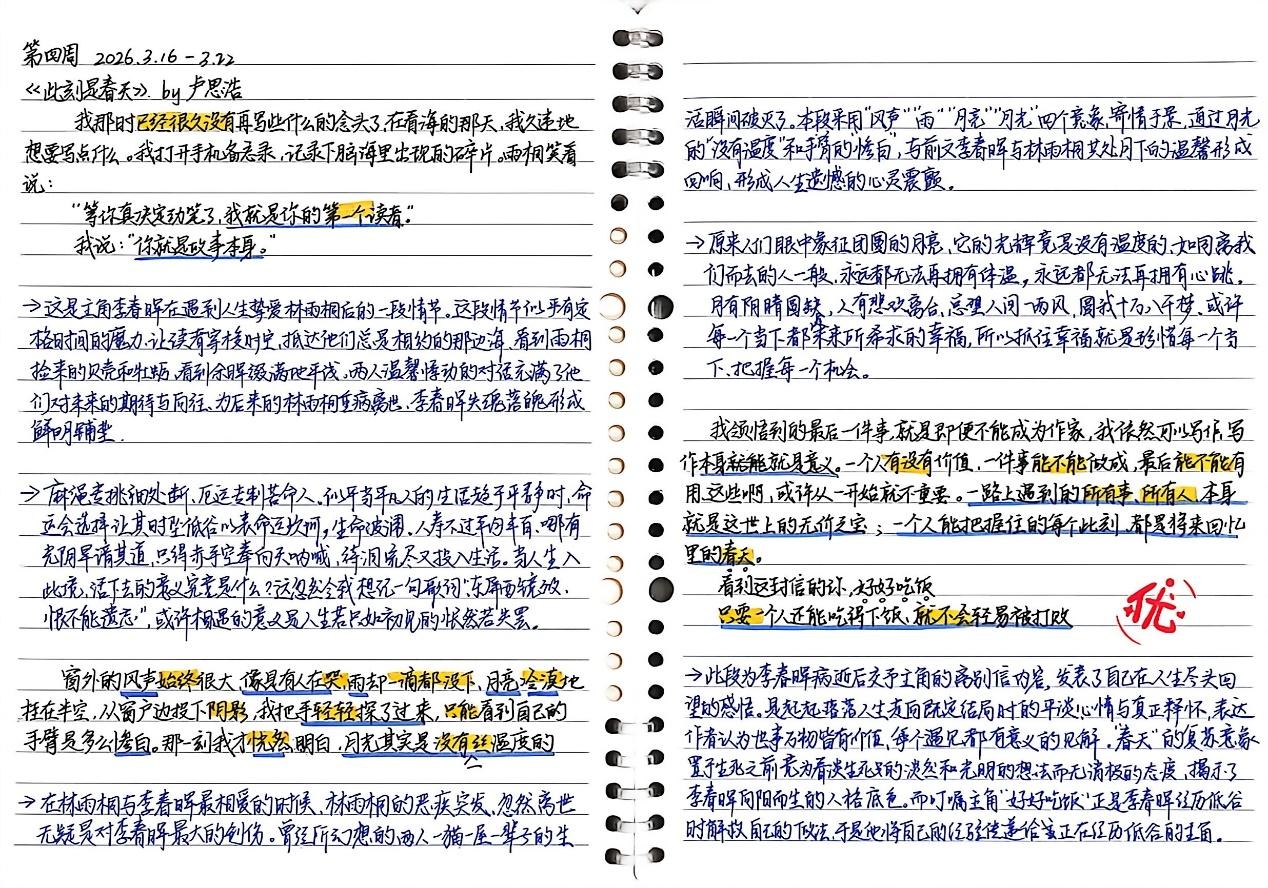 第四周 2026.3.16-3.22
《此刻是春天》. by 卢思浩
我那时已经很久没有再写些什么的念头了,在看海的那天,我久违地
想要写点什么。我打开手机备忘录,记录下脑海里出现的碎片。雨相笑着
说:
“等你真决定动笔了,我就是你的第一个读者。”
我说:“你就是故事本身。”
→这是主角李春晖在遇到人生挚爱林雨相后的一段情节。这段情节似乎有定
格时间的魔力,让读者穿梭时空,抵达他们总是相约的那边海,看到雨相
捡来的贝壳和牡蛎,看到余晖缀满地平线,两人温馨悸动的对话充满了他
们对未来的期待与向往,为后来的林雨相重病离世、李春晖失魂落魄形成
鲜明铺垫.
→麻绳专挑细处断,厄运专割苦命人。似乎当平凡人的生活趋于平静时,命
运会选择让其时坠低谷以表命运坎坷,生命波澜。人寿不过年内半百,哪有
光阴早谙其道,只得赤手空拳向天呐喊,待泪流尽又投入生活。当人生入
此境,活下去的意义究竟是什么?这忽然令我想起一句歌词“东屏西镜放,
恨不能遗忘”,或许相遇的意义是人生若只如初见的怅然若失罢。
窗外的风声始终很大,像是有人在哭,雨却一滴都没下,月亮冷漠地
挂在半空,从窗户边投下阴影,我把手轻轻探了过来,只能看到自己的
手臂是多么惨白。那一刻我才恍然明白,月光其实是没有丝温度的
→在林雨相与李春晖最相爱的时候、林雨相的恶疾突发、忽然离世
无疑是对李春晖最大的创伤。曾经所幻想的两人一猫一屋一辈子的生
活瞬间破灭了。本段采用“风声”“雨”“月亮”“月光”四个意象,寄情于景,通过月光
的“没有温度”和手臂的惨白,与前文李春晖与林雨相共处月下的温馨形成
回响,形成人生遗憾的心灵震颤。
→原来人们眼中象征团圆的月亮,它的光辉竟是没有温度的,如同离我
们而去的人一般,永远都无法再拥有体温,永远都无法再拥有心跳。
月有阴晴圆缺,人有悲欢离合,总想人间一两风,圆我十万八千梦、或许
每一个当下都未来所希求的幸福,所以抓住幸福就是珍惜每一个当
下、把握每一个机会。
我领悟到的最后一件事,就是即便不能成为作家,我依然可以写作,写
作本身就能就是意义。一个人有没有价值,一件事能不能做成,最后能不能有
用,这些啊,或许从一开始就不重要。一路上遇到的所有事、所有人,本身
就是这世上的无价之宝;一个人能把握住的每个此刻,都是将来回忆
里的春天。
看到这封信的你,好好吃饭
只要一个人还能吃得下饭、就不会轻易被打败
优
→此段为李春晖病逝后交予主角的离别信内容,发表了自己在人生尽头回
望的感悟。是起起落落人生走向既定结局时的平淡心情与真正释怀,表达
作者认为世事万物皆有价值,每个遇见都有意义的见解。“春天”的复苏意象
置于生死之前竟为看淡生死的淡然和光明的想法而无消极的态度,揭示了
李春晖向阳而生的人格底色。而叮嘱主角“好好吃饭”正是李春晖经历低谷
时解救自己的做法,于是他将自己的经验传递给当正在经历低谷的主角。